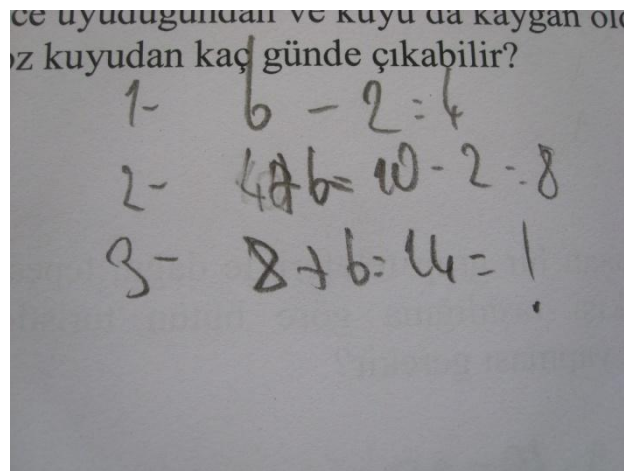 ce uyuduğundan ve kuyu da kaygan
oz kuyudan kaç günde çıkabilir?
1- 6 - 2 = 4
2- 4+6= 10 - 2 = 8
3- 8+6= 14 = !